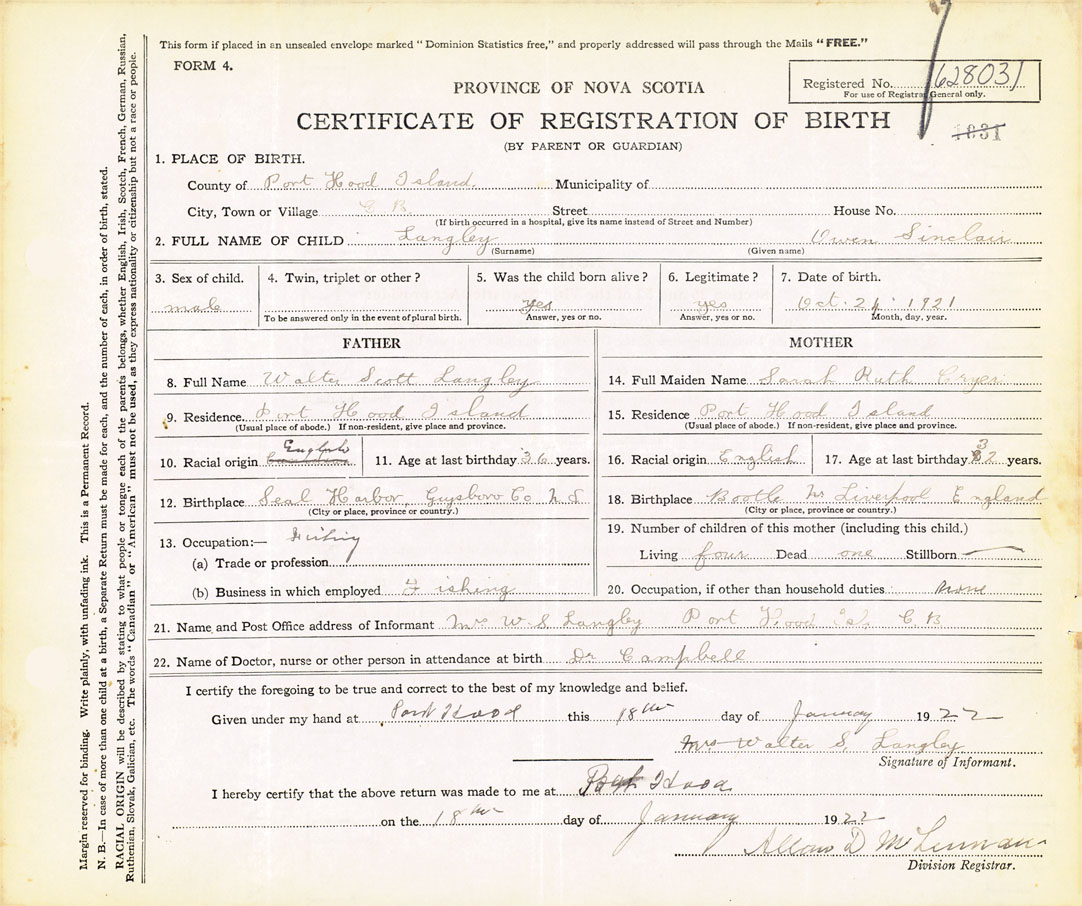 This form if placed in an unsealed envelope marked "Dominion Statistics free," and properly addressed will pass through the Mails "FREE."
FORM 4.
Registered No. 628031
For use of Registrar General only.
PROVINCE OF NOVA SCOTIA
CERTIFICATE OF REGISTRATION OF BIRTH
1631
(BY PARENT OR GUARDIAN)
1. PLACE OF BIRTH.
County of Port Hood Island Municipality of
City, Town or Village C B. Street House No.
(If birth occurred in a hospital, give its name instead of Street and Number)
2. FULL NAME OF CHILD Langley Owen Sinclair
(Surname) (Given name)
3. Sex of child. 4. Twin, triplet or other? 5. Was the child born alive? 6. Legitimate? 7. Date of birth.
male yes yes Oct. 24 1921
To be answered only in the event of plural birth. Answer, yes or no. Answer, yes or no. Month, day, year.
FATHER MOTHER
8. Full Name Walter Scott Langley 14. Full Maiden Name Sarah Ruth Cryer
9. Residence. Port Hood Island 15. Residence Port Hood Island
(Usual place of abode.) If non-resident, give place and province. (Usual place of abode.) If non-resident, give place and province.
English
10. Racial origin Canadian 11. Age at last birthday 36 years. 16. Racial origin English 17. Age at last birthday 32 years.
12. Birthplace Seal Harbor, Guysboro Co N S 18. Birthplace Bootle Nr Liverpool England
(City or place, province or country.) (City or place, province or country.)
13. Occupation:— Fishing 19. Number of children of this mother (including this child.)
(a) Trade or profession Living four Dead one Stillborn —
(b) Business in which employed Fishing 20. Occupation, if other than household duties: none
21. Name and Post Office address of Informant Mrs W. S. Langley Port Hood Isl. C. B
22. Name of Doctor, nurse or other person in attendance at birth Dr Campbell
I certify the foregoing to be true and correct to the best of my knowledge and belief.
Given under my hand at Port Hood this 18th day of January 1922
Mrs Walter S. Langley
Signature of Informant.
I hereby certify that the above return was made to me at Port Hood
on the 18th day of January 1922
Allan D McLennan
Division Registrar.
Margin reserved for binding. Write plainly, with unfading ink. This is a Permanent Record.
N. B.—In case of more than one child at a birth, a Separate Return must be made for each, and the number of each, in order of birth, stated.
RACIAL ORIGIN will be described by stating to what people or tongue each of the parents belongs, whether English, Irish, Scotch, French, German, Russian,
Ruthenian, Slovak, Galician, etc. The words "Canadian" or "American" must not be used, as they express nationality or citizenship but not a race or people.